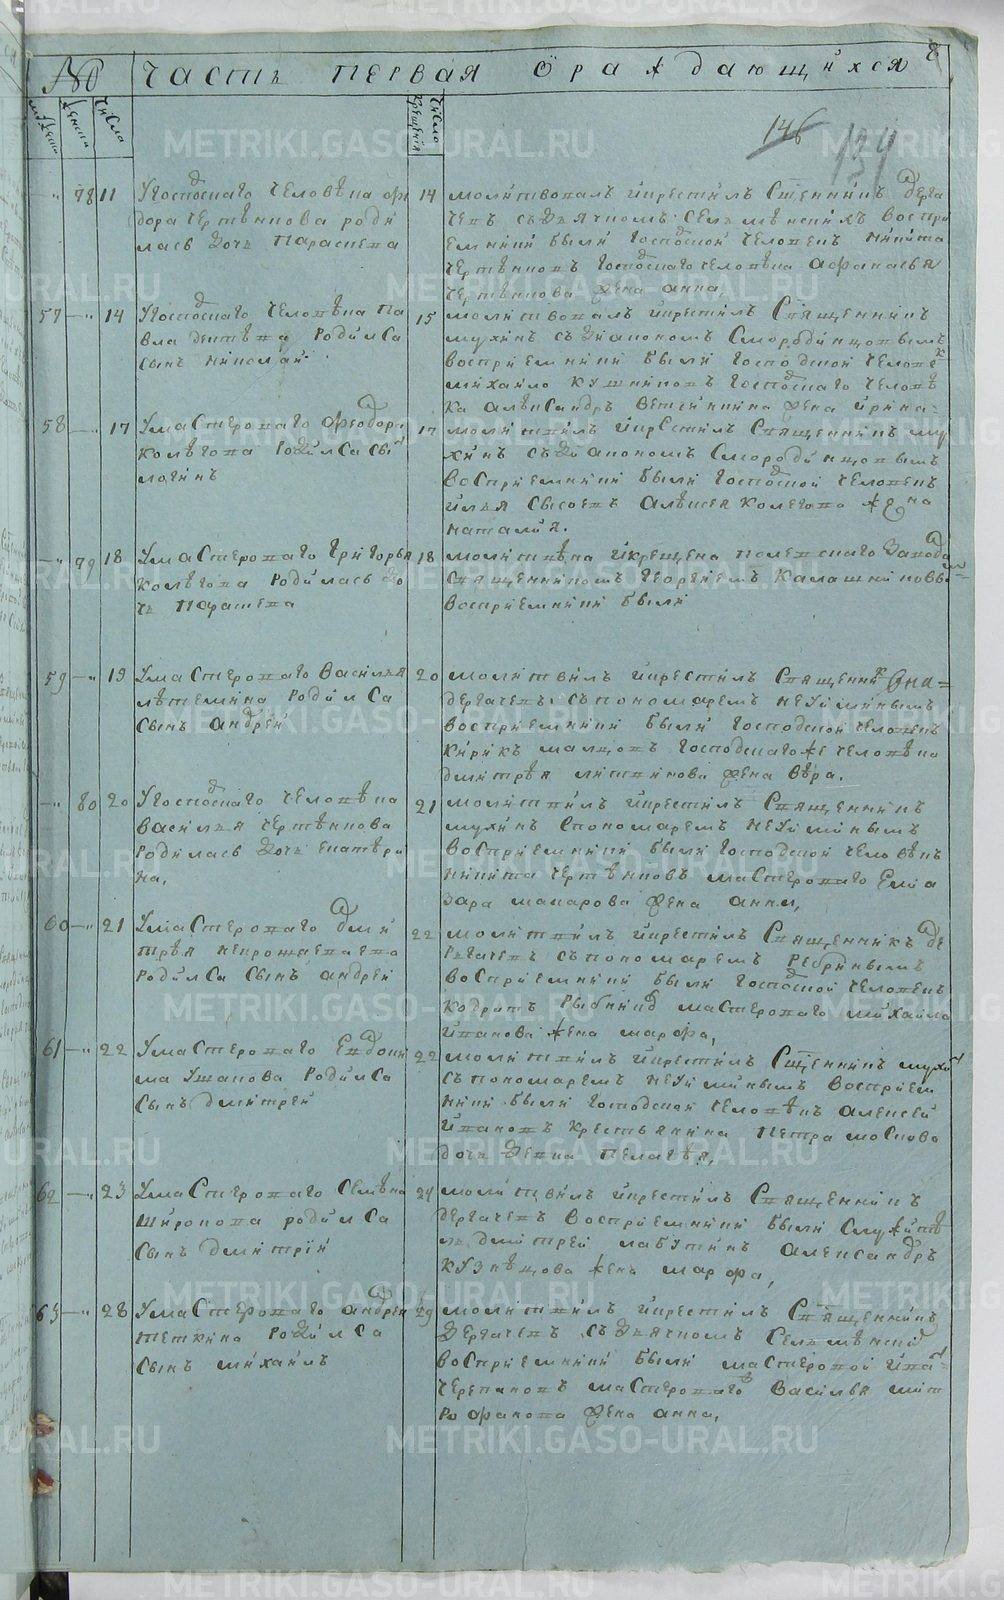 № Часть первая ѡ раждающихся 8
мужеска
женска
число
число крещенїя
146 134
" 78 11 У господскаго человѣка фи
дора чертѣнкова роди
лась дочь параскева
14 молитвовалъ икрестилъ Сщенникъ дерга
чевъ съдьячкомъ Селмѣнскихъ воспри
емники были господской человекъ никита
чертѣнковъ господскаго человѣка афанасья
чертѣнкова жена анна,
57 — " 14 У господскаго человѣка па
вла родился
сынъ николай
15 молитвовалъ икрестилъ Священникъ
мухинъ съдіакономъ Смородинцовымъ
восприемники были господской человекъ
михайло кушниковъ господскаго человѣ
ка алѣксандръ жена ирина
58 — " 17 У мастероваго феодора
колѣгова родился сы
логинъ
17 молитвилъ икрестилъ Священникъ му
хинъ съдіакономъ Смородинцовымъ
восприемники были господской человекъ
илья сысоевъ алѣксея колегова жена
наталия.
" 79 18 У мастероваго григорья
колѣгова родилась до
чь парасева
18 молитвена икрещена полевскаго завода
Священникомъ георгиемъ калашниковым
восприемники были
59 — " 19 У мастероваго василья
лѣтемина родился
сынъ андрей
20 молитвилъ икрестилъ Священник
дергачевъ съпономаремъ неуиминымъ
восприемники были господской человекъ
кирикъ малцовъ господскагоже человѣка
дмитрѣя литвинова жена вѣра.
" 80 20 У господскаго человѣка
василья чертѣнкова
родилась дочь екатѣри
на,
21 молитвилъ икрестилъ Священникъ
мухинъ спономаремъ неуиминымъ
восприемники были господской человѣкъ
никита чертѣнковъ мастероваго елиа
зара макарова жена анна,
60 — " 21 У мастероваго дми
трѣя непрошаева
родился сынъ андрей
22 молитвилъ икрестилъ Священникъ де
ргачевъ съпономаремъ ребринымъ
восприемники были господской человекъ
кодратъ рыбкинъ мастероваго михайла
иванова жена марфа,
61 — " 22 У мастероваго евдоки
ма ушакова родился
сынъ дмитрей
22 молитвилъ икрестилъ Сщенникъ мухи
съпономаремъ неуиминымъ восприем
ники были господской человѣкъ алексей
ивановъ крестьянина петра москова
дочь девка пелагѣя,
62 — " 23 У мастероваго семѣна
широкова родился
сынъ дмитрий
24 молитвилъ икрестилъ Священникъ
дергачевъ восприемники были служитѣ
ль дмитрей лабутинъ александръ
кузнѣцова жена марфа,
63 — " 28 У мастероваго андрея
теткина родился
сынъ михаилъ
29 молитвилъ икрестилъ Священникъ
дергачевъ съдьячкомъ Селмѣнски
восприемники были мастеровой ива
черепановъ мастероваго василья мит
рофанова жена анна,
METRIKI.GASO-URAL.RU